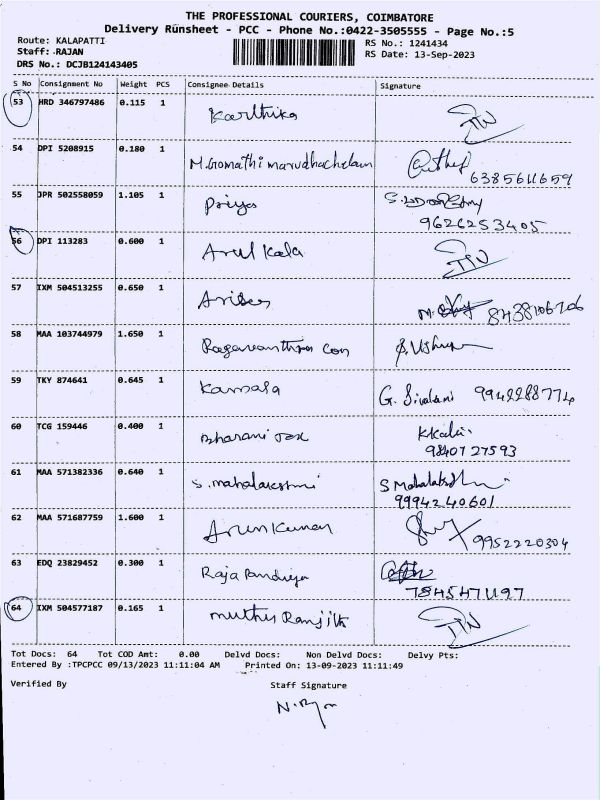 THE PROFESSIONAL COURIERS, COIMBATORE
Delivery Runsheet - PCC - Phone No.:0422-3505555 - Page No.:5
Route: KALAPATTI
Staff: RAJAN
DRS No.: DCJB124143405
RS No.: 1241434
RS Date: 13-Sep-2023
S No Consignment No Weight PCS Consignee Details Signature
53 HRD 346797486 0.115 1 Karthika
54 DPI 5208915 0.180 1 M.Gomathi marudhachalam
6385611659
55 JPR 502558059 1.105 1 Priya
9626253405
56 DPI 113283 0.600 1 Arul Kala
57 IXM 504513255 0.650 1 8438106706
58 MAA 103744979 1.650 1
59 TKY 874641 0.645 1 Kamala G. Sivalani 9942288774
60 TCG 159446 0.400 1 Bharani
9840127593
61 MAA 571382336 0.640 1 S. mahalakshmi
9994240601
62 MAA 571687759 1.600 1 Arun Kumar
9952220304
63 EDQ 23829452 0.300 1 Raja Pandiya
7845471197
64 IXM 504577187 0.165 1 muthu Ranjith
Tot Docs: 64 Tot COD Amt: 0.00 Delvd Docs: Non Delvd Docs: Delvy Pts:
Entered By :TPCPCC 09/13/2023 11:11:04 AM Printed On: 13-09-2023 11:11:49
Verified By Staff Signature